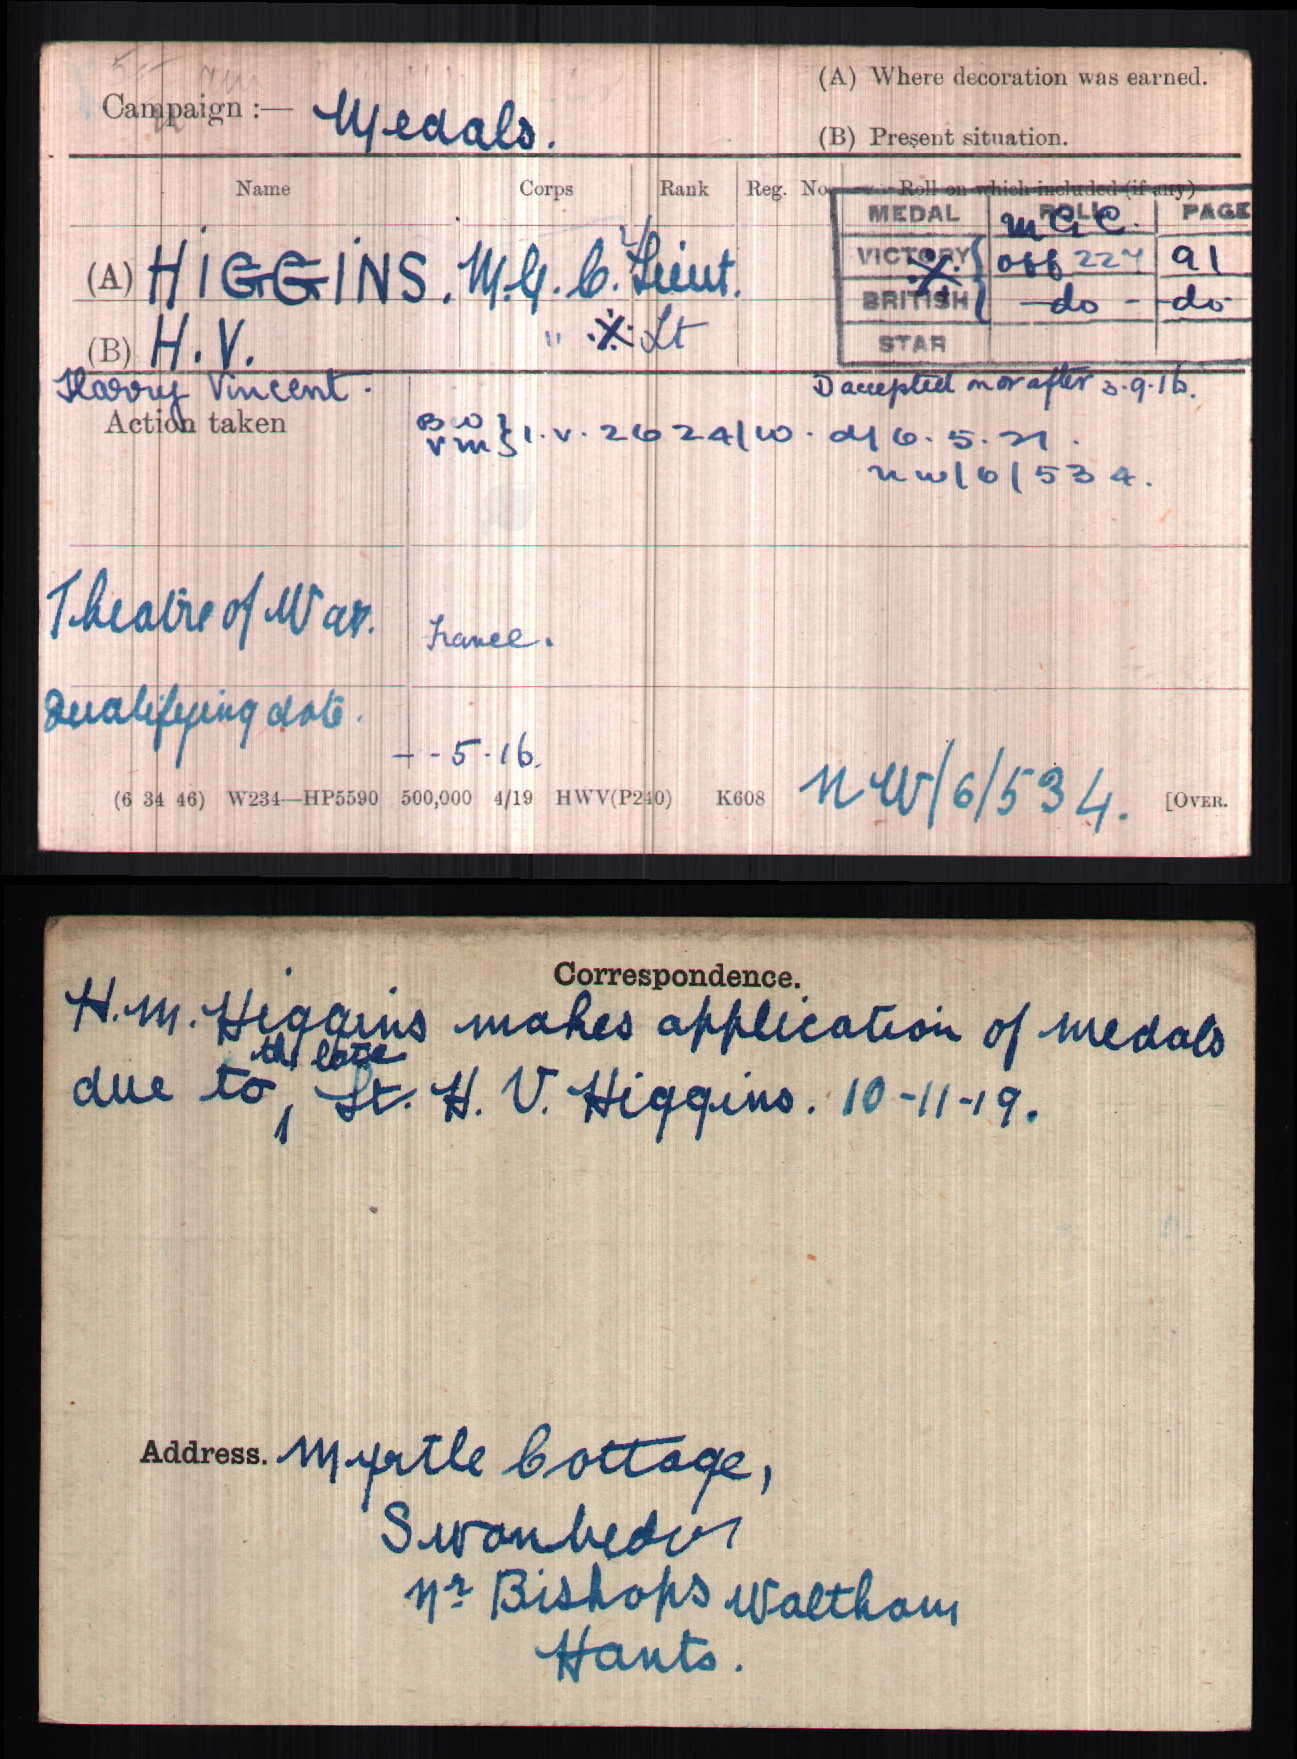 Campaign :— Medals.
(A) Where decoration was earned.
(B) Present situation.
Name Corps Rank Reg. No. Roll on which included (if any)
MEDAL ROLL PAGE
M G C.
(A) HIGGINS. M.G.C. 2/Lieut. VICTORY off 227 91
BRITISH —do— —do—
(B) H.V. " Lt STAR
Harry Vincent. D accepted on or after 3.9.16.
Action taken BW VM I.V. 2624/W. d/ 6.5.21.
NW/6/534.
Theatre of War. France.
Qualifying date. - - 5.16.
(6 34 46) W234—HP5590 500,000 4/19 HWV(P240) K608 NW/6/534. [OVER.
Correspondence.
H.M. Higgins makes application of medals
the late
due to, Lt. H. V. Higgins. 10-11-19.
Address. Myrtle Cottage,
nr Bishops Waltham
Hants.